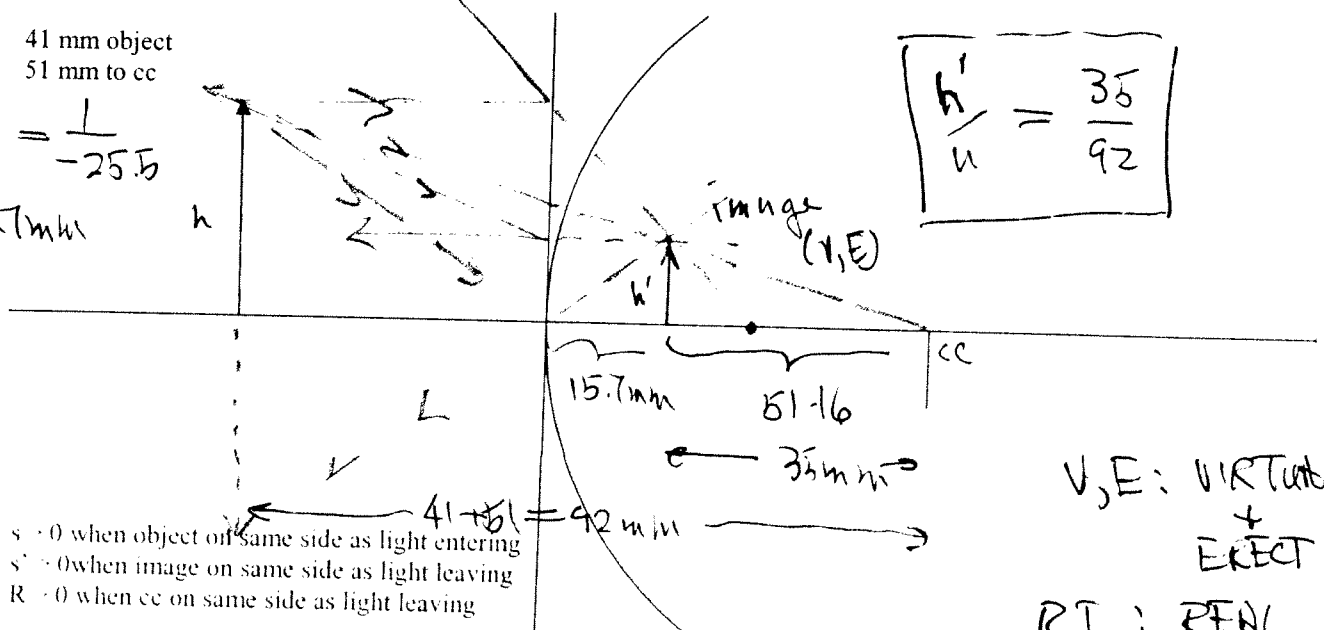 41 mm object
51 mm to cc
= 1
-25.5
7mm
h
h'/u = 35/92
image
(V,E)
h'
cc
15.7mm
51-16
35mm
41+51=92mm
V,E: VIRTUAL
+
ERECT
s > 0 when object on same side as light entering
s' > 0when image on same side as light leaving
R > 0 when cc on same side as light leaving